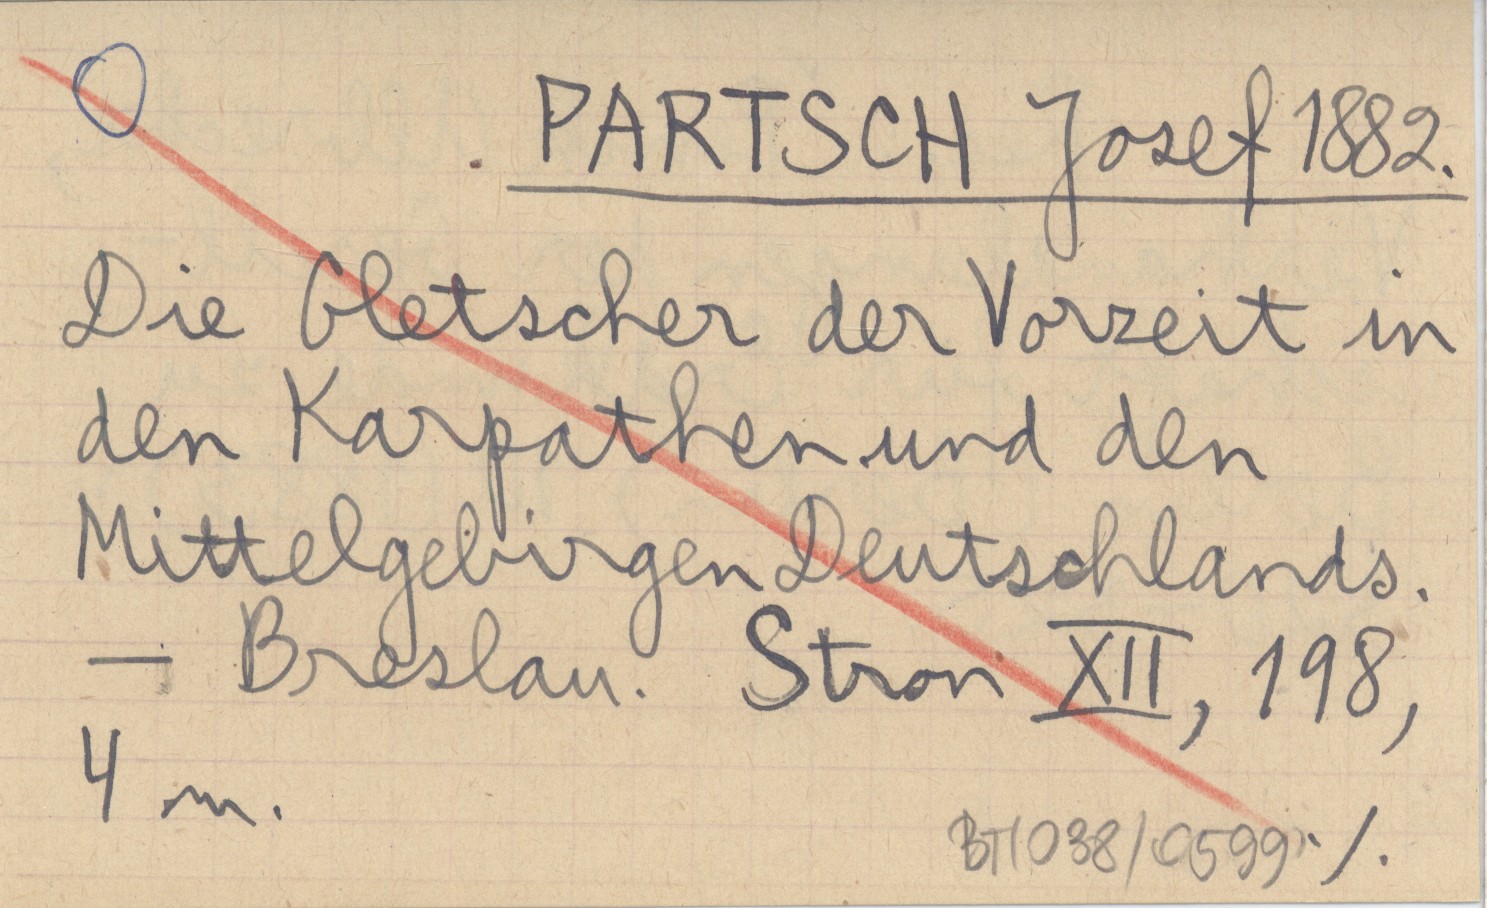 PARTSCH Josef 1882.
Die Gletscher der Vorzeit in
den Karpathen und den
Mittelgebirgen Deutschlands.
— Breslau. Stron XII, 198,
4 m.
BT1038/0599 ./.